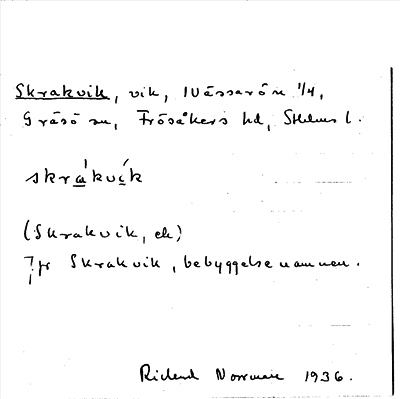 Skrakvik, vik, Wässarön 1/4,
Gräsö sn, Frösåkers hd, Sthlms l.
skrákvík
(Skrakvik, ek)
Jfr Skrakvik, bebyggelsenamnen.
Rickard 1936.